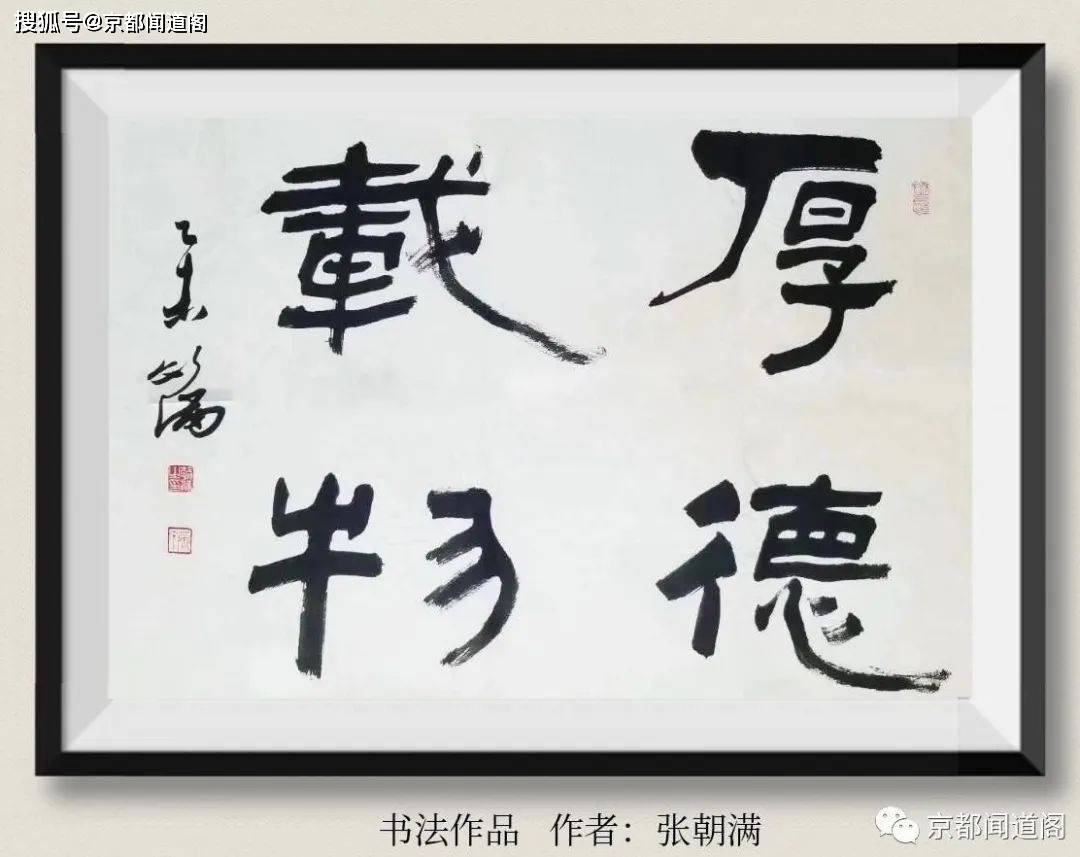 搜狐号@京都闻道阁
厚德
載物
乙未
书法作品 作者：张朝满
京都闻道阁